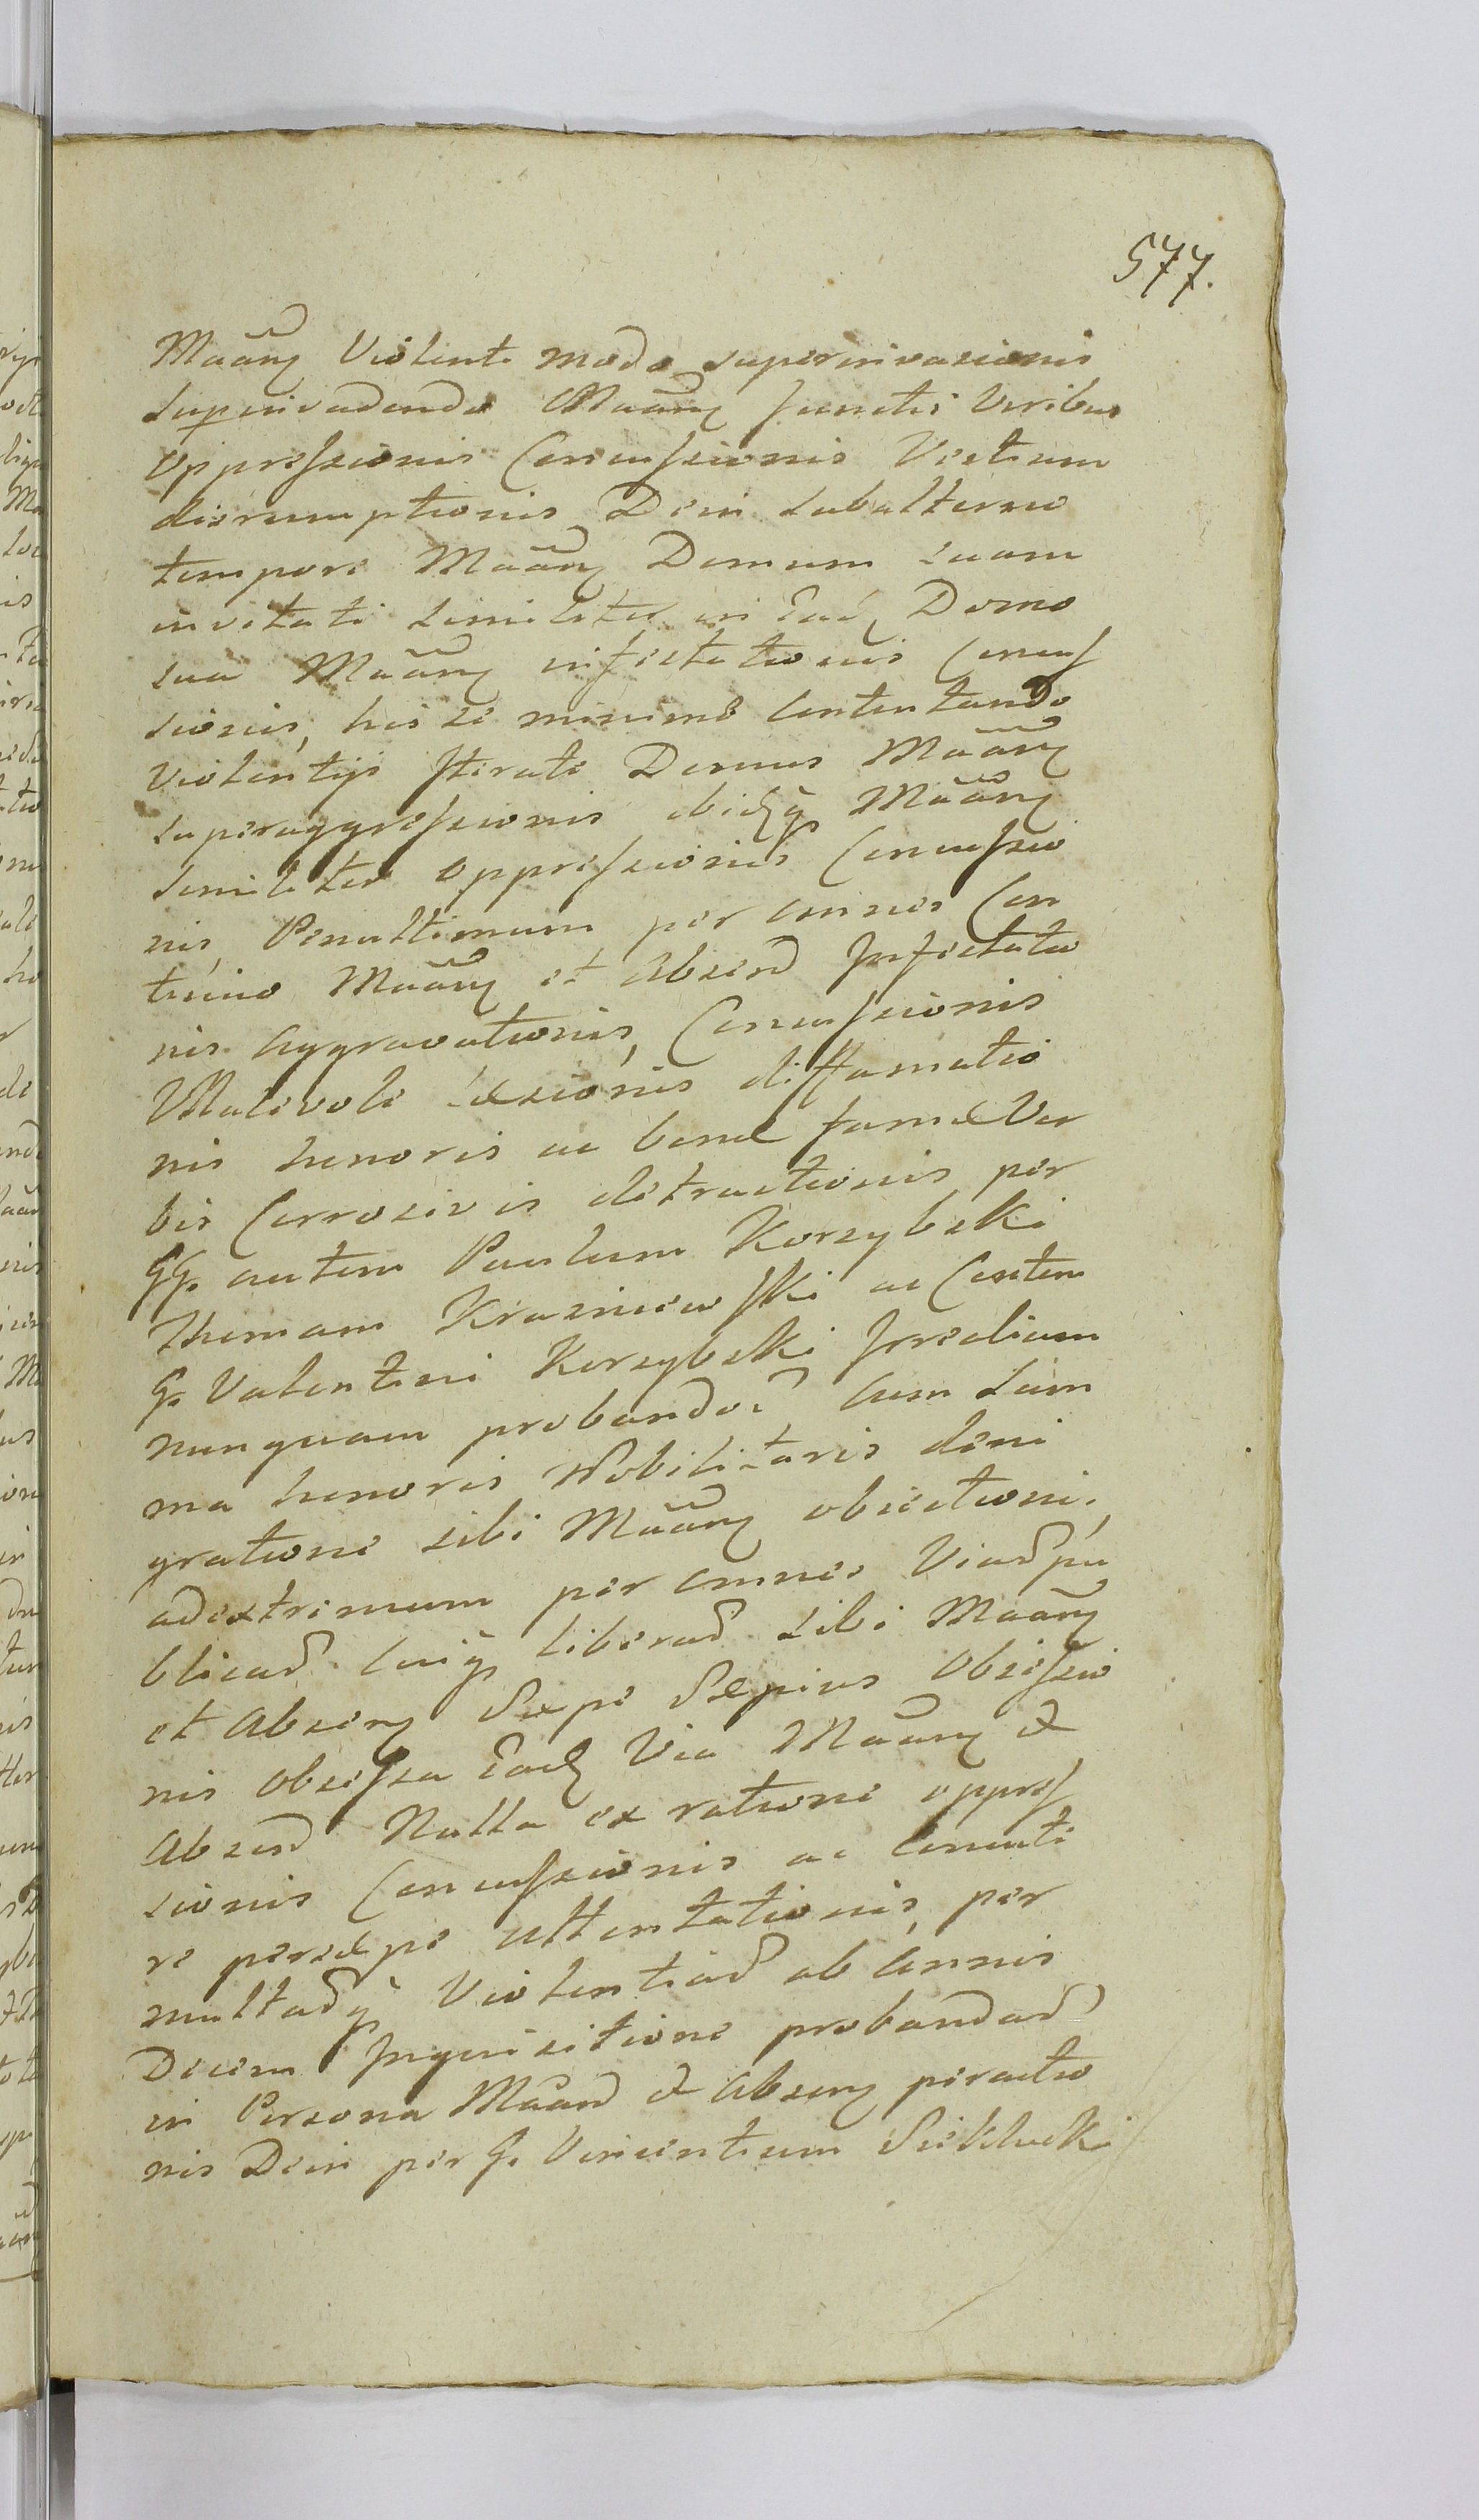 577.
Maãng Violento modo superinvasionis
superinvadendo Maãng Junctis Viribus
oppressionis Concussionis Vestium
disrumptionis, Dein subalterno
tempore Maãng Domum suam
invitati similiter in Ead Domo
sua Maãng infestationis Concus
sionis, his se minime contentando
violentijs Iterato Domus Maãng
superaggressionis ibidq Maãng
similiter oppressionis Concussio
nis, Penultimum per omnes Con
tinuo Maãng et Absend Infestatio
nis aggravationis, Concussionis
Malevole læsionis diffamatio
nis honoris ac bonæ famæ Ver
bis Corrosivis detractionis per
GG. autem Paulum Korzybski
Thomam Krasniewski ac Conten
G. Valentini Korzybski Inredium
nunquam probando cum sum
ma honoris Nobilitaris deni
gratione sibi Maãng obiectioni,
adextremum per omnes Viad pu
blicad cuiq liberad sibi Maãng
et Abseng Sæpe Sæpius Obsessio
nis obsessa Eadq Via Maãng &
Absend Nulla ex ratione oppres
sionis Concussionis ac concuti
re persæpe attentationis, per
multadq Violentiad ab Annis
Decem Inquisitione probandad
in Persona Maãnd & Abseng peractio
nis Dein per G. Vincentium Siekłucki